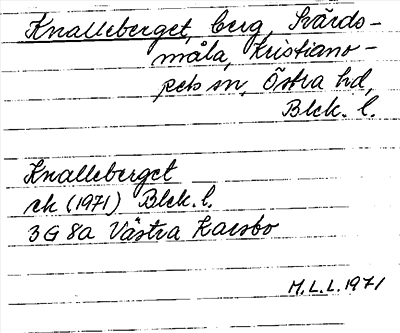 Knalleberget, berg, Svärds-
måla, Kristiano-
pels sn, Östra hd,
Blek. l.
Knalleberget
ek (1971) Blek. l.
3G 8a Västra Karsbo
M.L.L. 1971